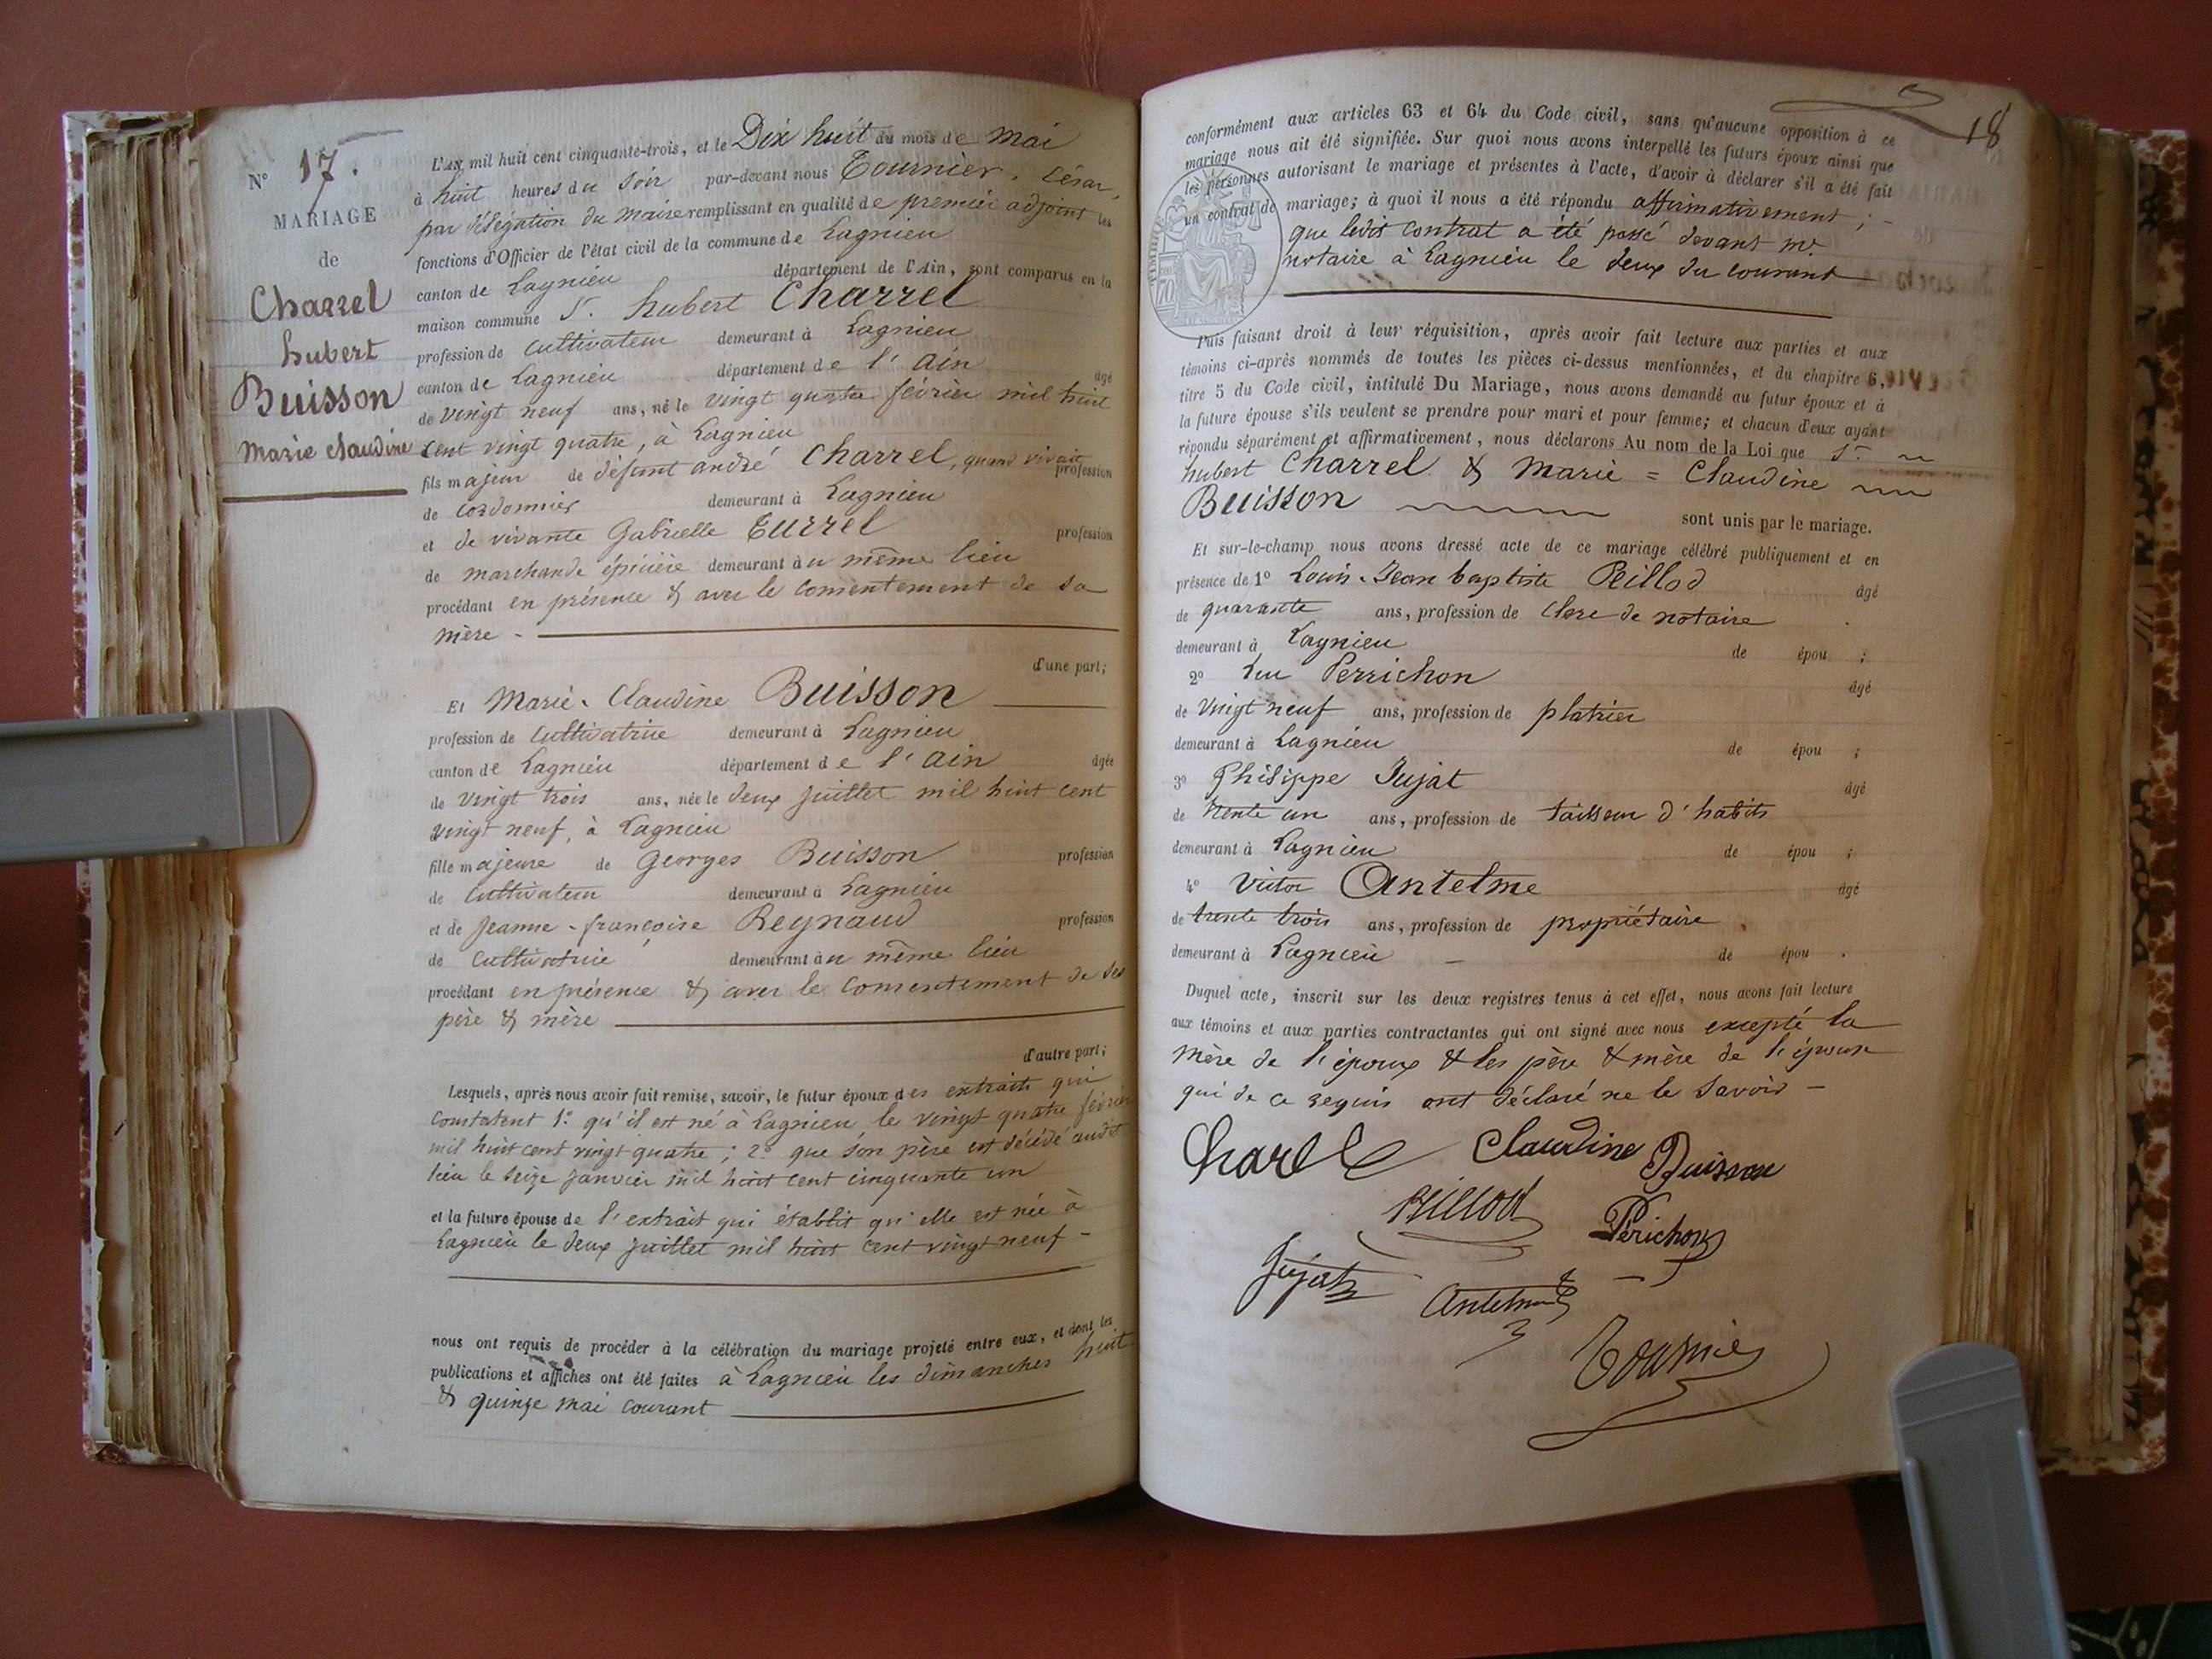 N° 17.
MARIAGE
de
Charrel
hubert
Buisson
Marie Claudine
L'AN mil huit cent cinquante-trois, et le Dix huit du mois de mai
à huit heures du soir par-devant nous Tournier, César,
par délégation du maire remplissant en qualité de premier adjoint les
fonctions d'Officier de l'état civil de la commune de Lagnieu
canton de Lagnieu département de l'Ain, sont comparus en la
maison commune S. hubert Charrel
profession de cultivateur demeurant à Lagnieu
canton de Lagnieu département de l'Ain âgé
de vingt neuf ans, né le vingt quatre février mil huit
cent vingt quatre, à Lagnieu
fils majeur de défunt andré Charrel, quand vivait profession
de cordonnier demeurant à Lagnieu
et de vivante Gabrielle Turrel profession
de marchande épicière demeurant au même lieu
procédant en présence & avec le consentement de sa
mère -
d'une part;
Et Marie-Claudine Buisson
profession de cultivatrice demeurant à Lagnieu
canton de Lagnieu département de l'Ain âgée
de vingt trois ans, née le deux juillet mil huit cent
vingt neuf, à Lagnieu
fille majeure de Georges Buisson profession
de cultivateur demeurant à Lagnieu
et de Jeanne-françoise Reynaud profession
de cultivatrice demeurant au même lieu
procédant en présence & avec le consentement de ses
père & mère
d'autre part;
Lesquels, après nous avoir fait remise, savoir, le futur époux des extraits qui
constatent 1° qu'il est né à Lagnieu le vingt quatre février
mil huit cent vingt quatre; 2° que son père est décédé audit
lieu le seize janvier mil huit cent cinquante un
et la future épouse de l'extrait qui établit qu'elle est née à
Lagnieu le deux juillet mil huit cent vingt neuf -
nous ont requis de procéder à la célébration du mariage projeté entre eux, et dont les
publications et affiches ont été faites à Lagnieu les dimanches huit
& quinze mai courant
18
conformément aux articles 63 et 64 du Code civil, sans qu'aucune opposition à ce
mariage nous ait été signifiée. Sur quoi nous avons interpellé les futurs époux ainsi que
les personnes autorisant le mariage et présentes à l'acte, d'avoir à déclarer s'il a été fait
un contrat de mariage; à quoi il nous a été répondu affirmativement; -
que ledit contrat a été passé devant me
notaire à Lagnieu le deux du courant
Puis faisant droit à leur réquisition, après avoir fait lecture aux parties et aux
témoins ci-après nommés de toutes les pièces ci-dessus mentionnées, et du chapitre 6,
titre 5 du Code civil, intitulé Du Mariage, nous avons demandé au futur époux et à
la future épouse s'ils veulent se prendre pour mari et pour femme; et chacun d'eux ayant
répondu séparément et affirmativement, nous déclarons Au nom de la Loi que S.
hubert Charrel & Marie = Claudine
Buisson sont unis par le mariage.
Et sur-le-champ nous avons dressé acte de ce mariage célébré publiquement et en
présence de 1° Louis-Jean baptiste Reillod âgé
de quarante ans, profession de clerc de notaire
demeurant à Lagnieu de épou ;
2° Luc Perrichon âgé
de vingt neuf ans, profession de platrier
demeurant à Lagnieu de épou ;
3° Philippe Jujat âgé
de trente un ans, profession de tailleur d'habits
demeurant à Lagnieu de épou ;
4° Victor Antelme âgé
de trente trois ans, profession de propriétaire
demeurant à Lagnieu - de épou .
Duquel acte, inscrit sur les deux registres tenus à cet effet, nous avons fait lecture
aux témoins et aux parties contractantes qui ont signé avec nous excepté la
mère de l'époux & les père & mère de l'épouse
qui de ce requis ont déclaré ne le savoir -
Charel Claudine Buisson
Reillod Périchon
Jujat Antelme
Tournier